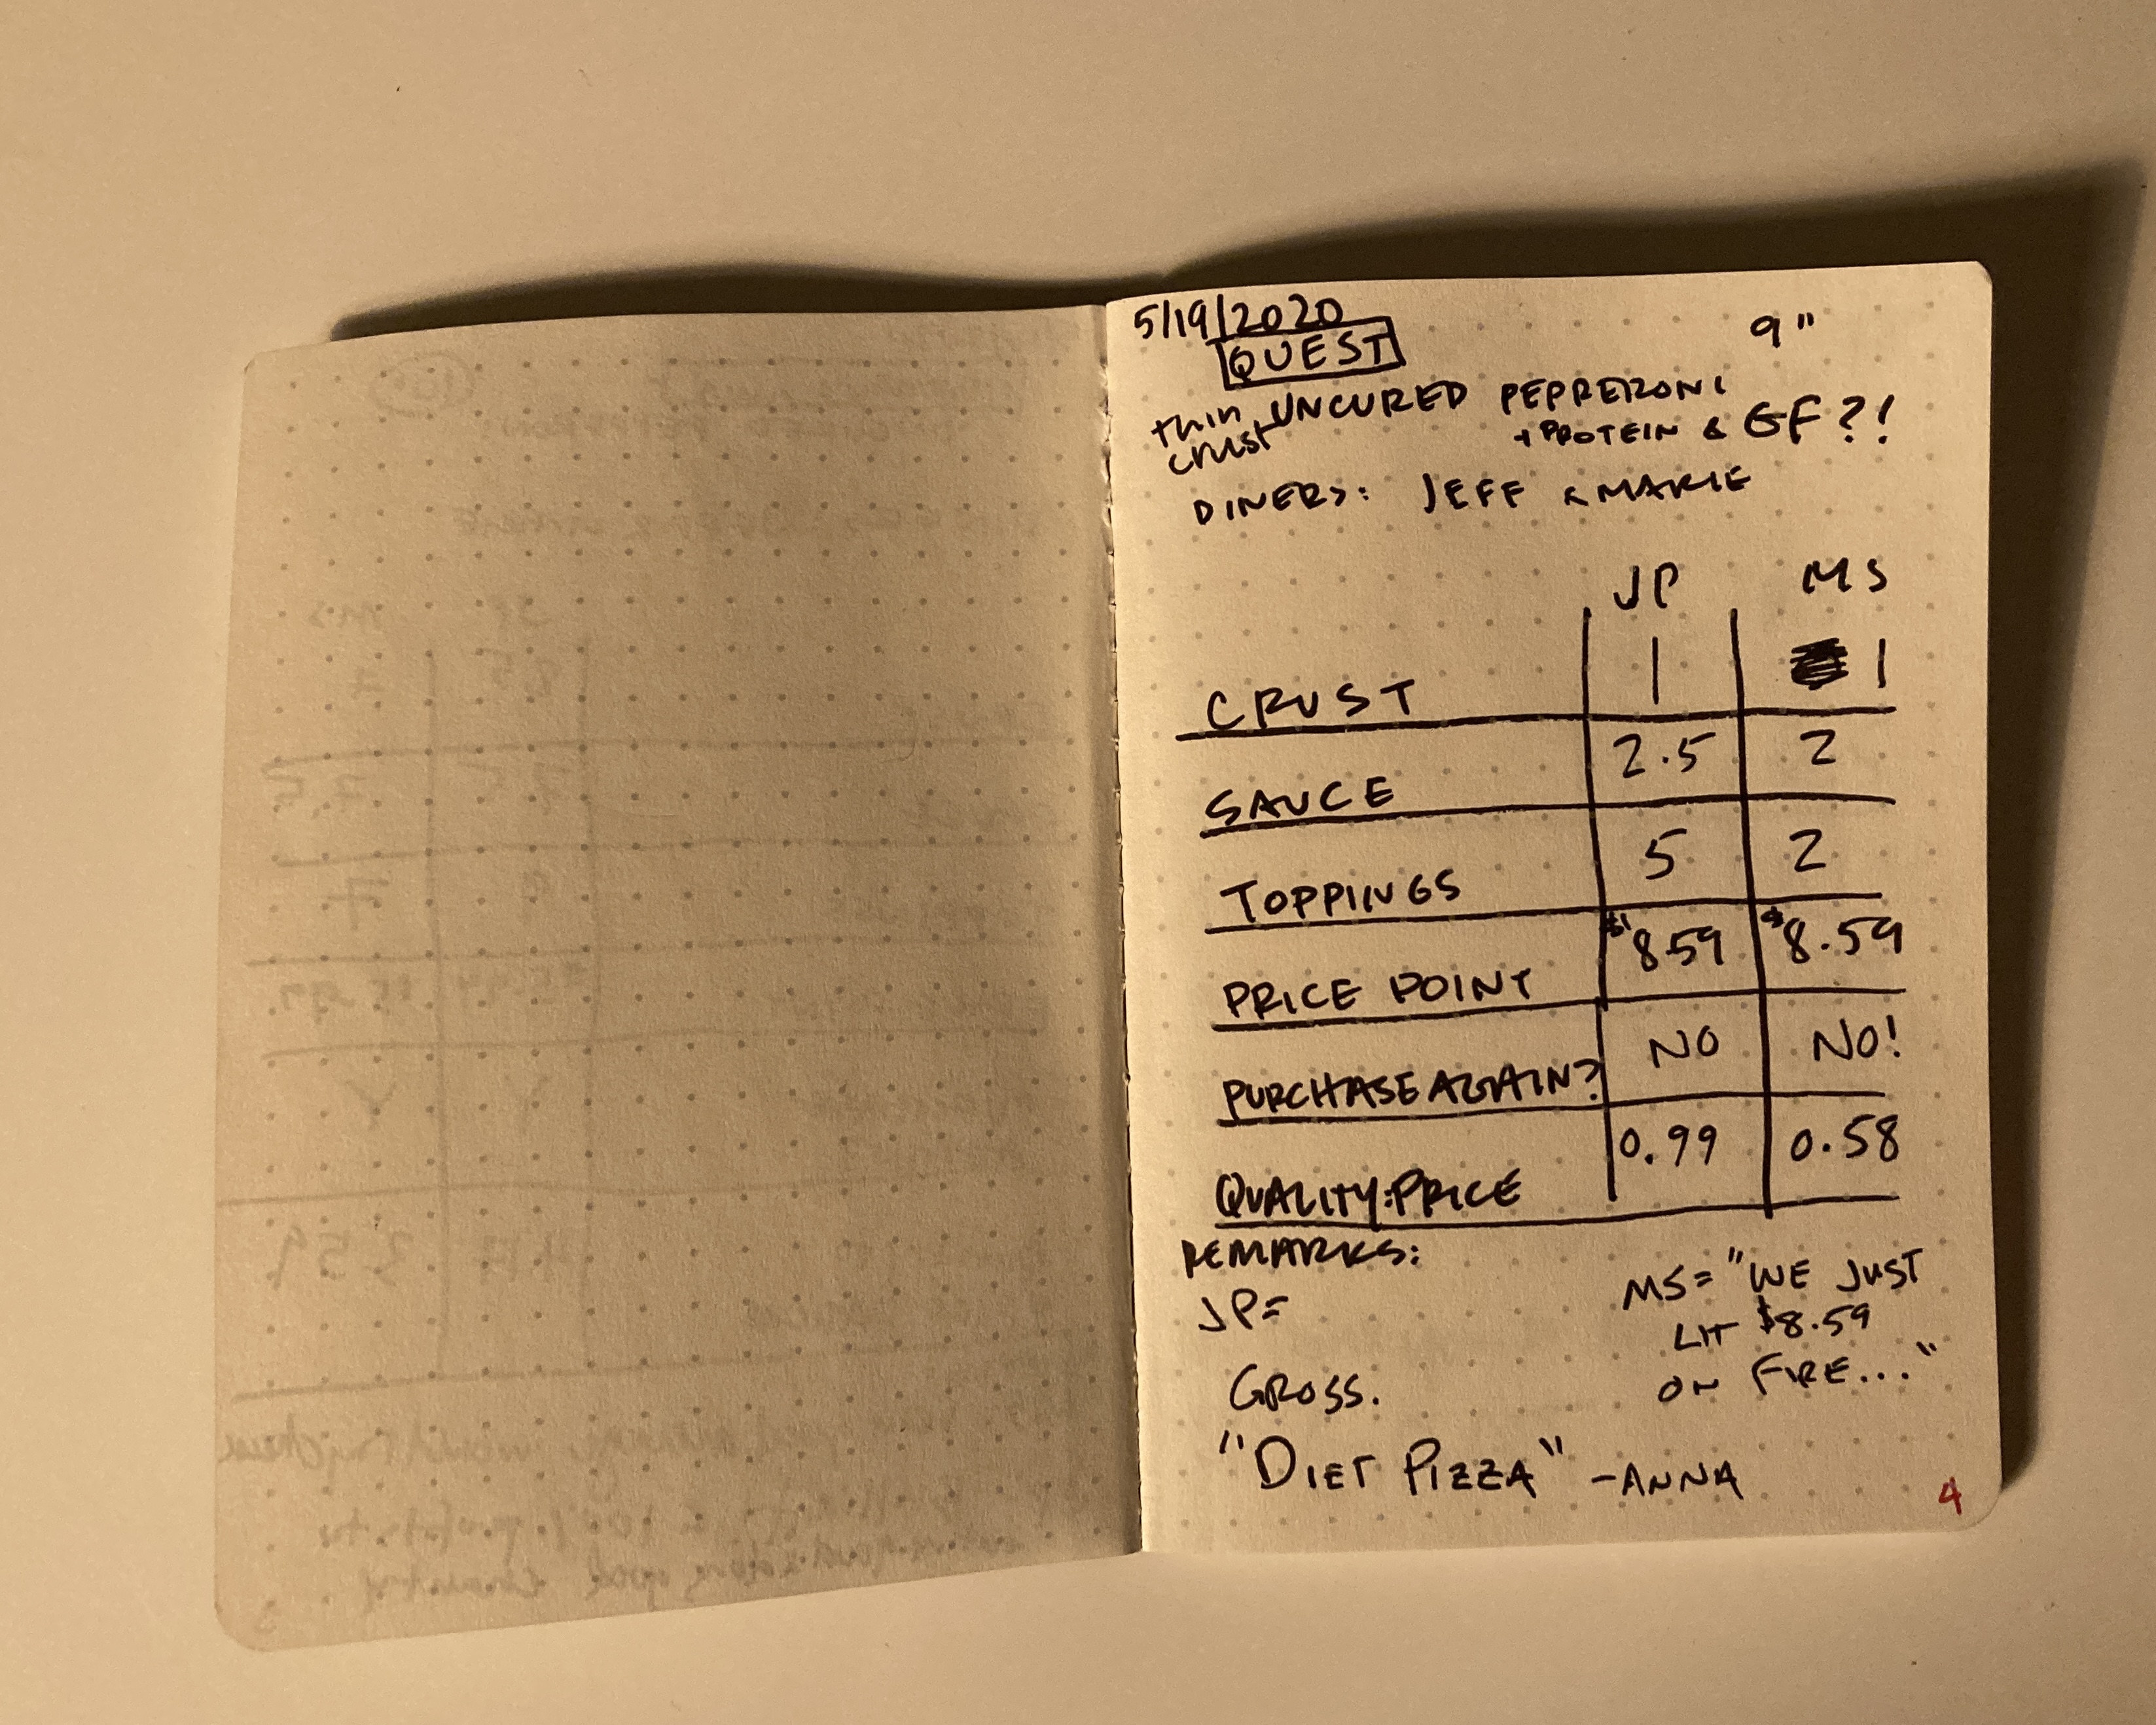 5/19/2020
QUEST
9"
thin crust UNCURED PEPPERONI
+ PROTEIN & GF?!
DINERS: JEFF & MARIE
JP MS
CRUST 1 1
SAUCE 2.5 2
TOPPINGS 5 2
PRICE POINT $8.59 $8.59
PURCHASE AGAIN? NO NO!
QUALITY:PRICE 0.99 0.58
REMARKS:
JP=
GROSS.
MS= "WE JUST
LIT $8.59
ON FIRE..."
"DIET PIZZA" -ANNA
4